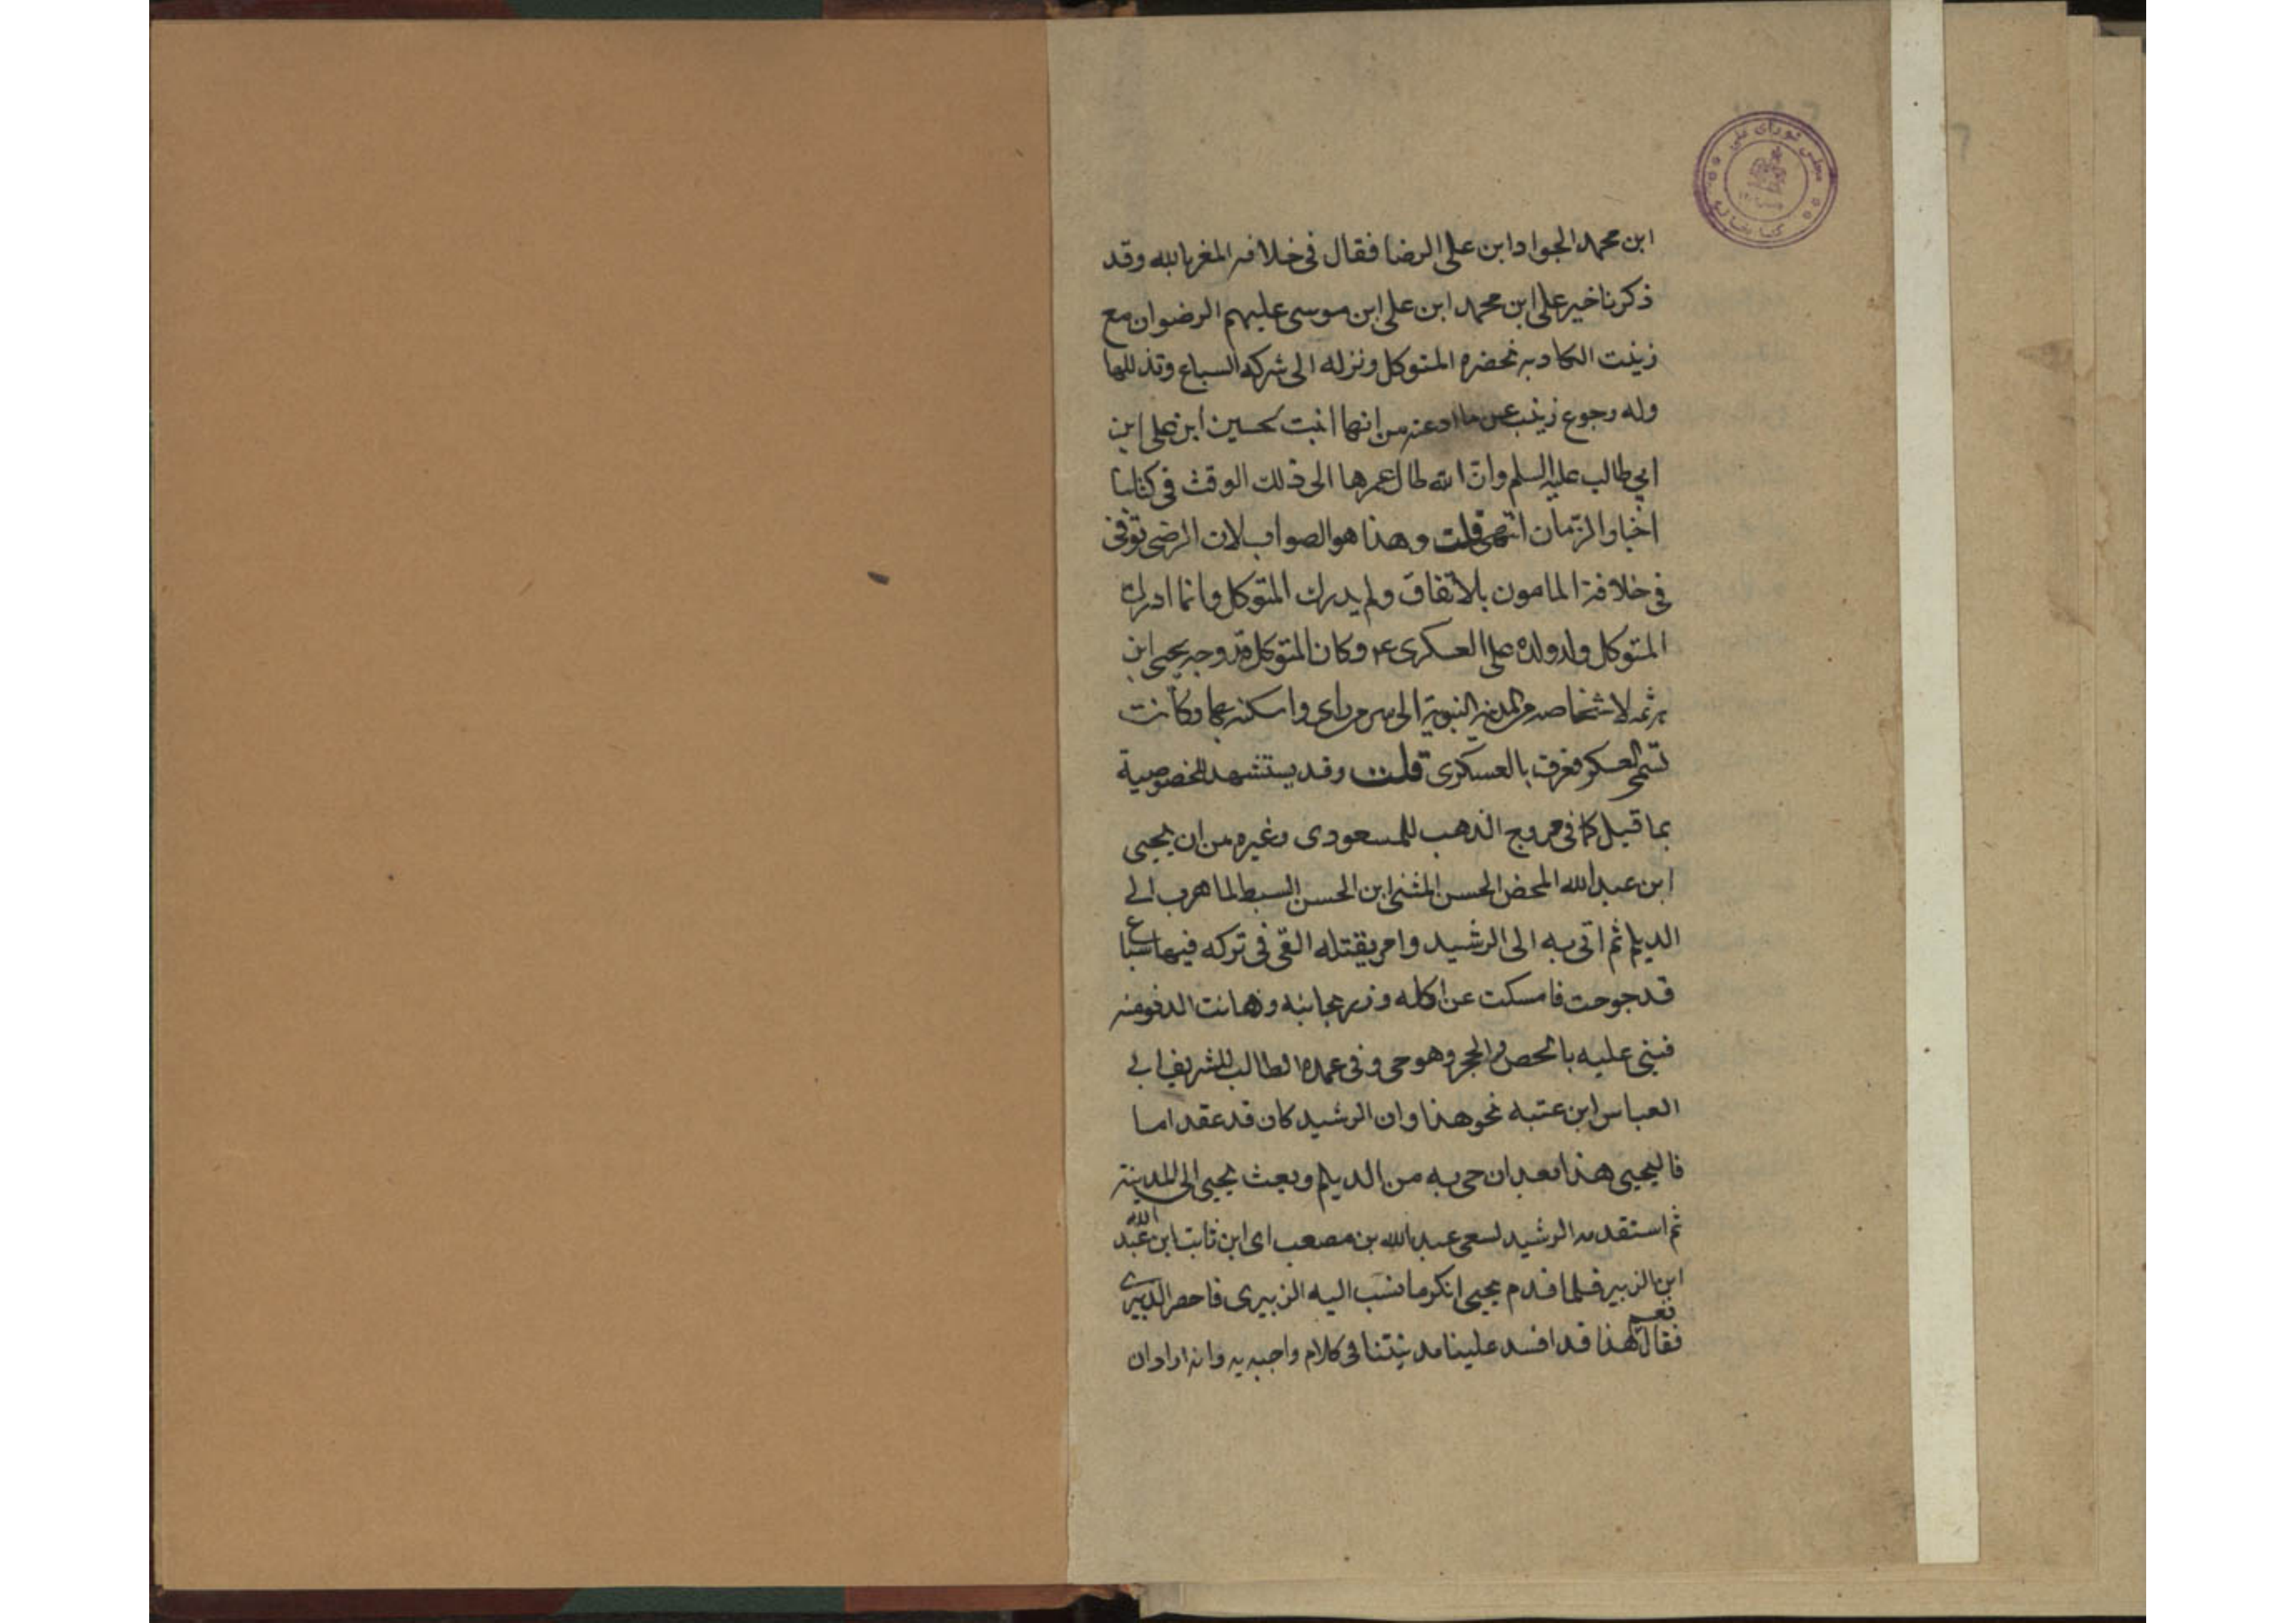 مجلس شورای ملی
کتابخانه
ابن محمد الجواد ابن على الرضا فقال فى خلافه المغربالله وقد
ذكرنا خير على ابن محمد ابن على ابن موسى عليهم الرضوان مع
زينت الكادبه نحضره المتوكل ونزله الى شركه السباع وتذللها
وله رجوع زينب عن ما ادعته من انها انبت لحسين ابن على ابن
ابي طالب عليه السلم وان الله طال عمرها الى ذلك الوقت فى كتابنا
اخبار الزمان انتهى قلت وهذا هو الصواب لان الرضى توفى
فى خلافة المامون بالاتفاق ولم يدرك المتوكل وانما ادرك
المتوكل ولد ولده على العسكرى ع وكان المتوكل قد وجه يحيى ابن
هرثمه لاشخاصه من المدينه النبوية الى سر من راى واسكنه بها وكانت
تسمى العسكر فعرف بالعسكرى قلت وقد يستشهد للخصوصية
بما قيل كما فى مروج الذهب للمسعودى وغيره من ان يحيى
ابن عبد الله المحض الحسن المثنى ابن الحسن السبط لما هرب الى
الديلم ثم اتى به الى الرشيد وامر بقتله القى فى تركه فيها سباع
قد جوحت فامسكت عن اكله وزير بجانبه وهانت الدفومنه
فبنى عليه بالحص والحجر وهو حى وفى عمدة الطالب للشريف ابى
العباس ابن عتبه نحو هذا وان الرشيد كان قد عقد اما
فا ليحيى هذا بعد ان حى به من الديلم وبعث يحيى الى المدينة
ثم استقدمه الرشيد لسعى عبد الله بن مصعب اى ابن ثابت ابن عبد الله
ابن الزبير فلما قدم يحيى انكر ما نسب اليه الزبيرى فاحضر الزبيرى
فقال نعم هذا قد افسد علينا مدينتنا فى كلام واجبه به وانه اراد ان